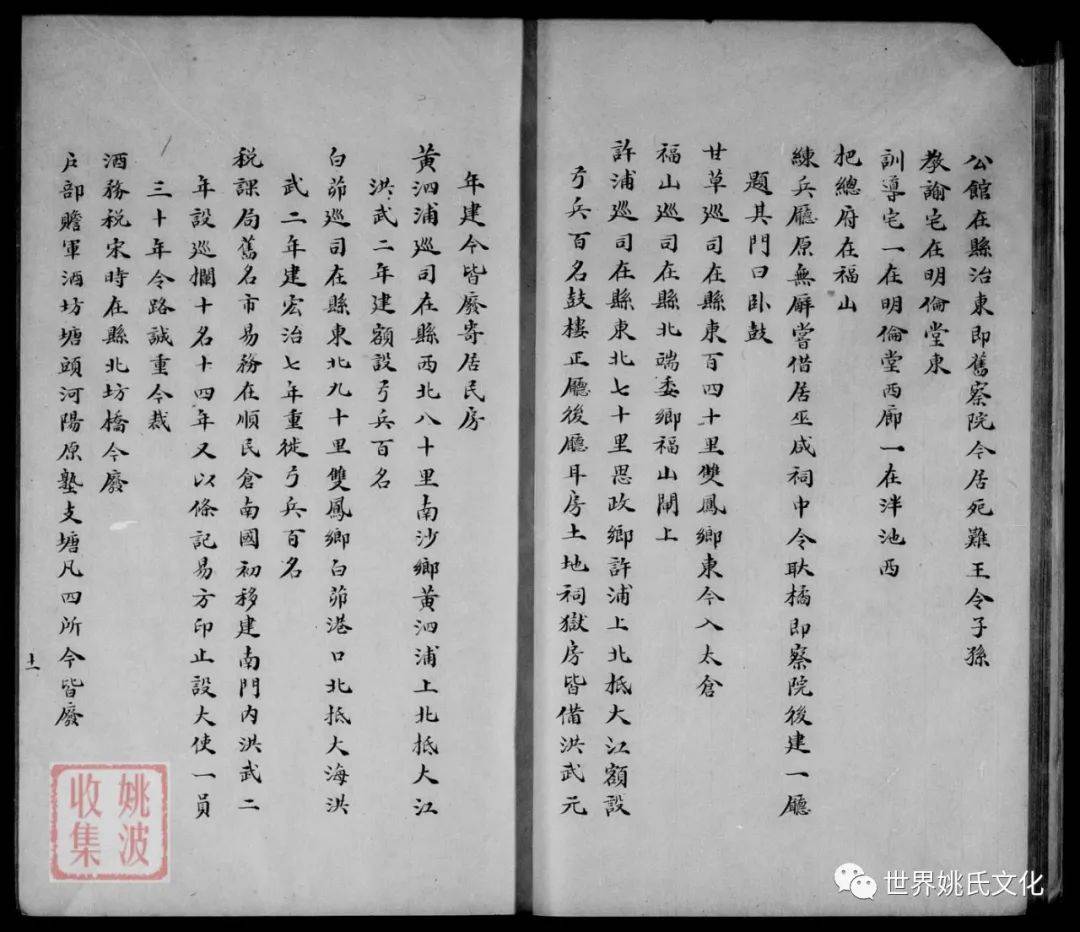 公館在縣治東即舊察院今居死難王令子孫
教諭宅在明倫堂東
訓導宅一在明倫堂西廊一在泮池西
把總府在福山
練兵廳原無廨嘗借居巫咸祠中令耿橘即察院後建一廳
題其門曰臥鼓
甘草巡司在縣東百四十里雙鳳鄉東今入太倉
福山巡司在縣北端委鄉福山閘上
許浦巡司在縣東北七十里思政鄉許浦上北抵大江額設
弓兵百名鼓樓正廳後廳耳房土地祠獄房皆備洪武元
年建今皆廢寄居民房
黄泗浦巡司在縣西北八十里南沙鄉黄泗浦上北抵大江
洪武二年建額設弓兵百名
白茆巡司在縣東北九十里雙鳳鄉白茆港口北抵大海洪
武二年建宏治七年重徙弓兵百名
税課局舊名市易務在順民倉南國初移建南門内洪武二
年設巡攔十名十四年又以條記易方印止設大使一員
三十年令路誠重今裁
酒務税宋時在縣北坊橋今廢
戶部贍軍酒坊塘頭河陽原塾支塘凡四所今皆廢
十一
姚波
收集
世界姚氏文化